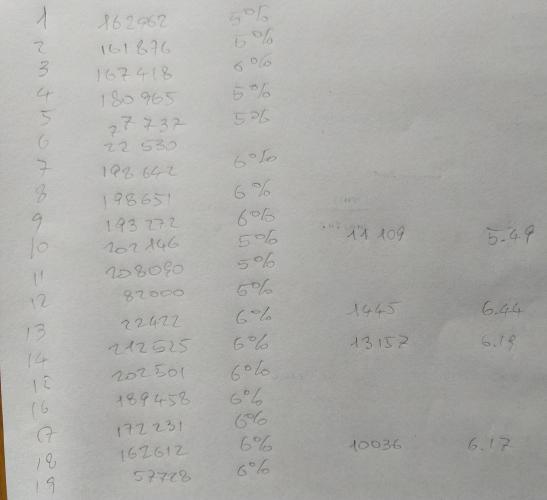 1 162062 5%
2 161876 5%
3 167418 6%
4 180965 5%
5 27737 5%
6 22530
7 198642 6%
8 198651 6%
9 193272 6%
10 202146 5% 11109 5.49
11 208090 5%
12 82000 5%
13 22422 6% 1445 6.44
14 212525 6% 13157 6.19
15 202501 6%
16 189458 6%
17 172231 6%
18 162612 6% 10036 6.17
19 57728 6%